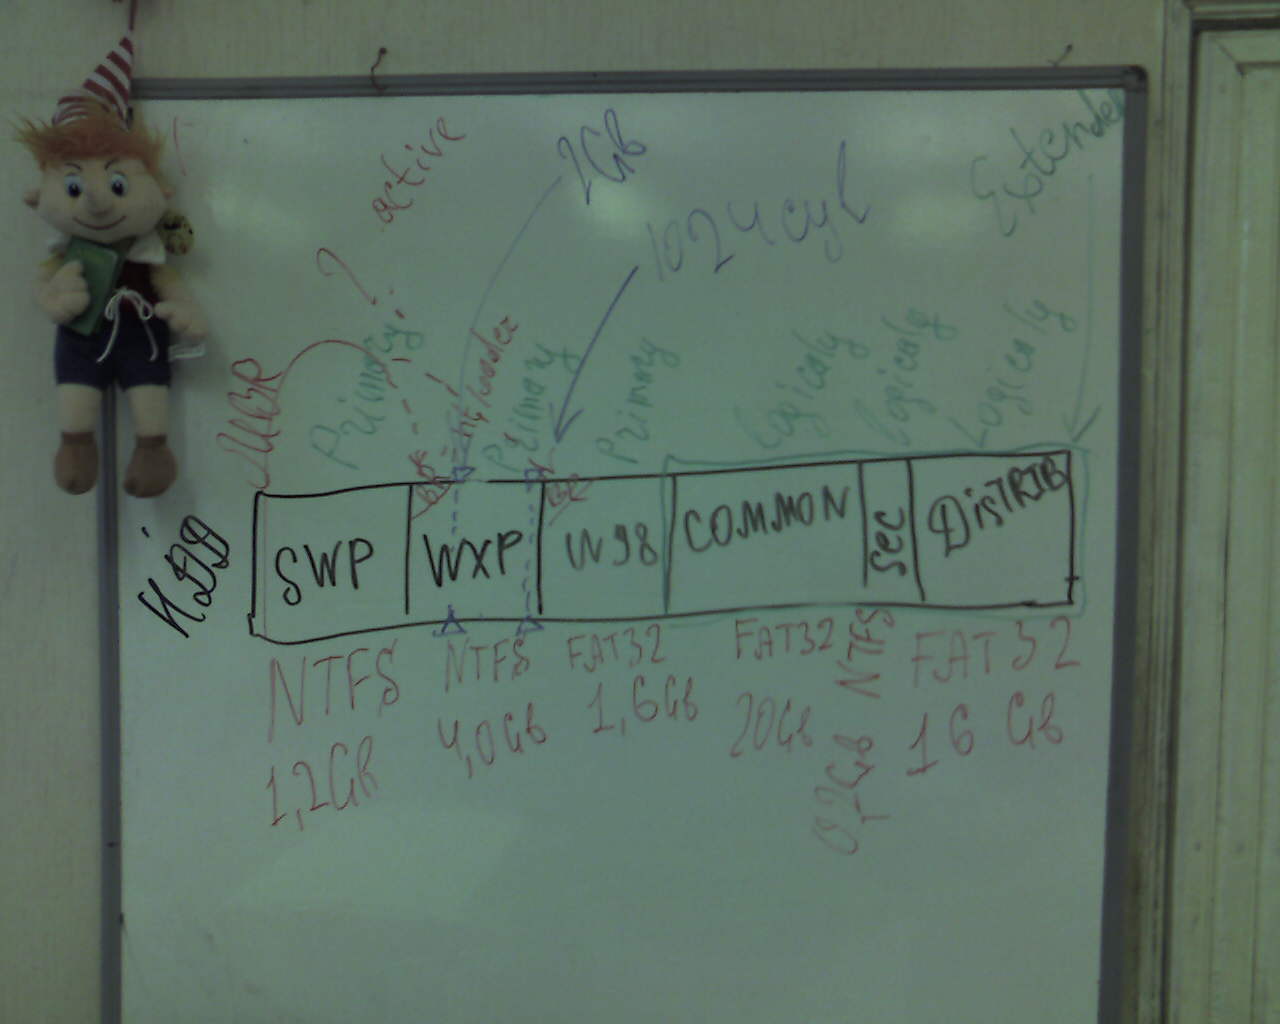 active
2Gb
1024 cyl
Extended
?
MBR
Primary
ntloader
Primary
Primary
Logicaly
Logicaly
Logicaly
HDD
SWP
WXP
W98
COMMON
SEC
DISTRIB
NTFS
NTFS
FAT32
FAT32
NTFS
FAT32
1,2Gb
4,0Gb
1,6Gb
20Gb
0,2Gb
16 Gb